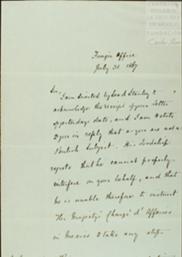 Foreign Office
July 31 1867
Sir,
I am directed by Lord Stanley to
acknowledge the receipt of your letter
of yesterday's date, and I am to state
to you in reply that as you are not a
British Subject, His Lordship
regrets that he cannot properly
interfere on your behalf, and that
he is unable therefore to instruct
Her Majesty's Chargé d'Affaires
in Mexico to take any step